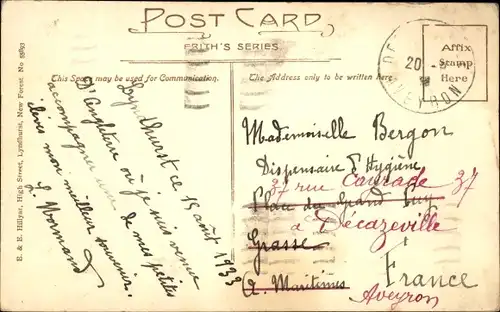 POST CARD
FRITH'S SERIES.
This Space may be used for Communication.
The Address only to be written here
Affix
Stamp
Here
20
AVEYRON
E. & E. Hillyar, High Street, Lyndhurst, New Forest. No
Lyndhurst ce 15 août 1933
D'Angleterre où je suis venue
accompagner une de mes petites
élèves mon meilleur souvenir.
L. Normand
Mademoiselle Bergon
Dispensaire d'Hygiène
37 rue Cayrade 37
Place du Grand Puy
à Décazeville
Grasse
A. Maritimes
France
Aveyron